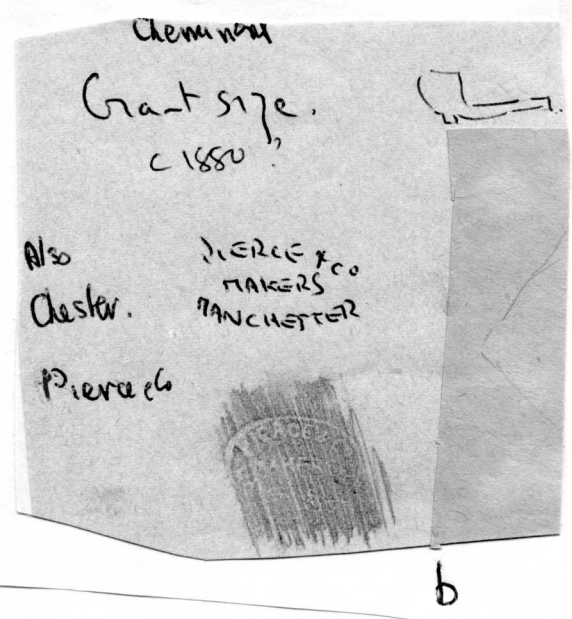 Giant size.
c 1880?
Also
Chester.
PIERCE & Co
MAKERS
MANCHESTER
Pierce & Co
MAKER
b